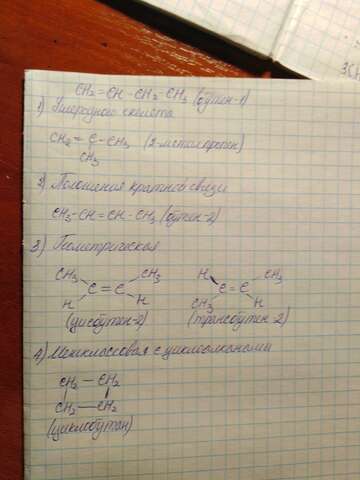 CH₂=CH-CH₂-CH₃ (бутен-1)
1) Углеродного скелета
CH₂=C-CH₃ (2-метилпропен)
CH₃
2) Положения кратной связи
CH₃-CH=CH-CH₃ (бутен-2)
3) Геометрическая
CH₃ CH₃ H CH₃
C=C C=C
H H CH₃ H
(цисбутен-2) (трансбутен-2)
4) Межклассовая с циклоалканами
CH₂-CH₂
CH₂-CH₂
(циклобутан)